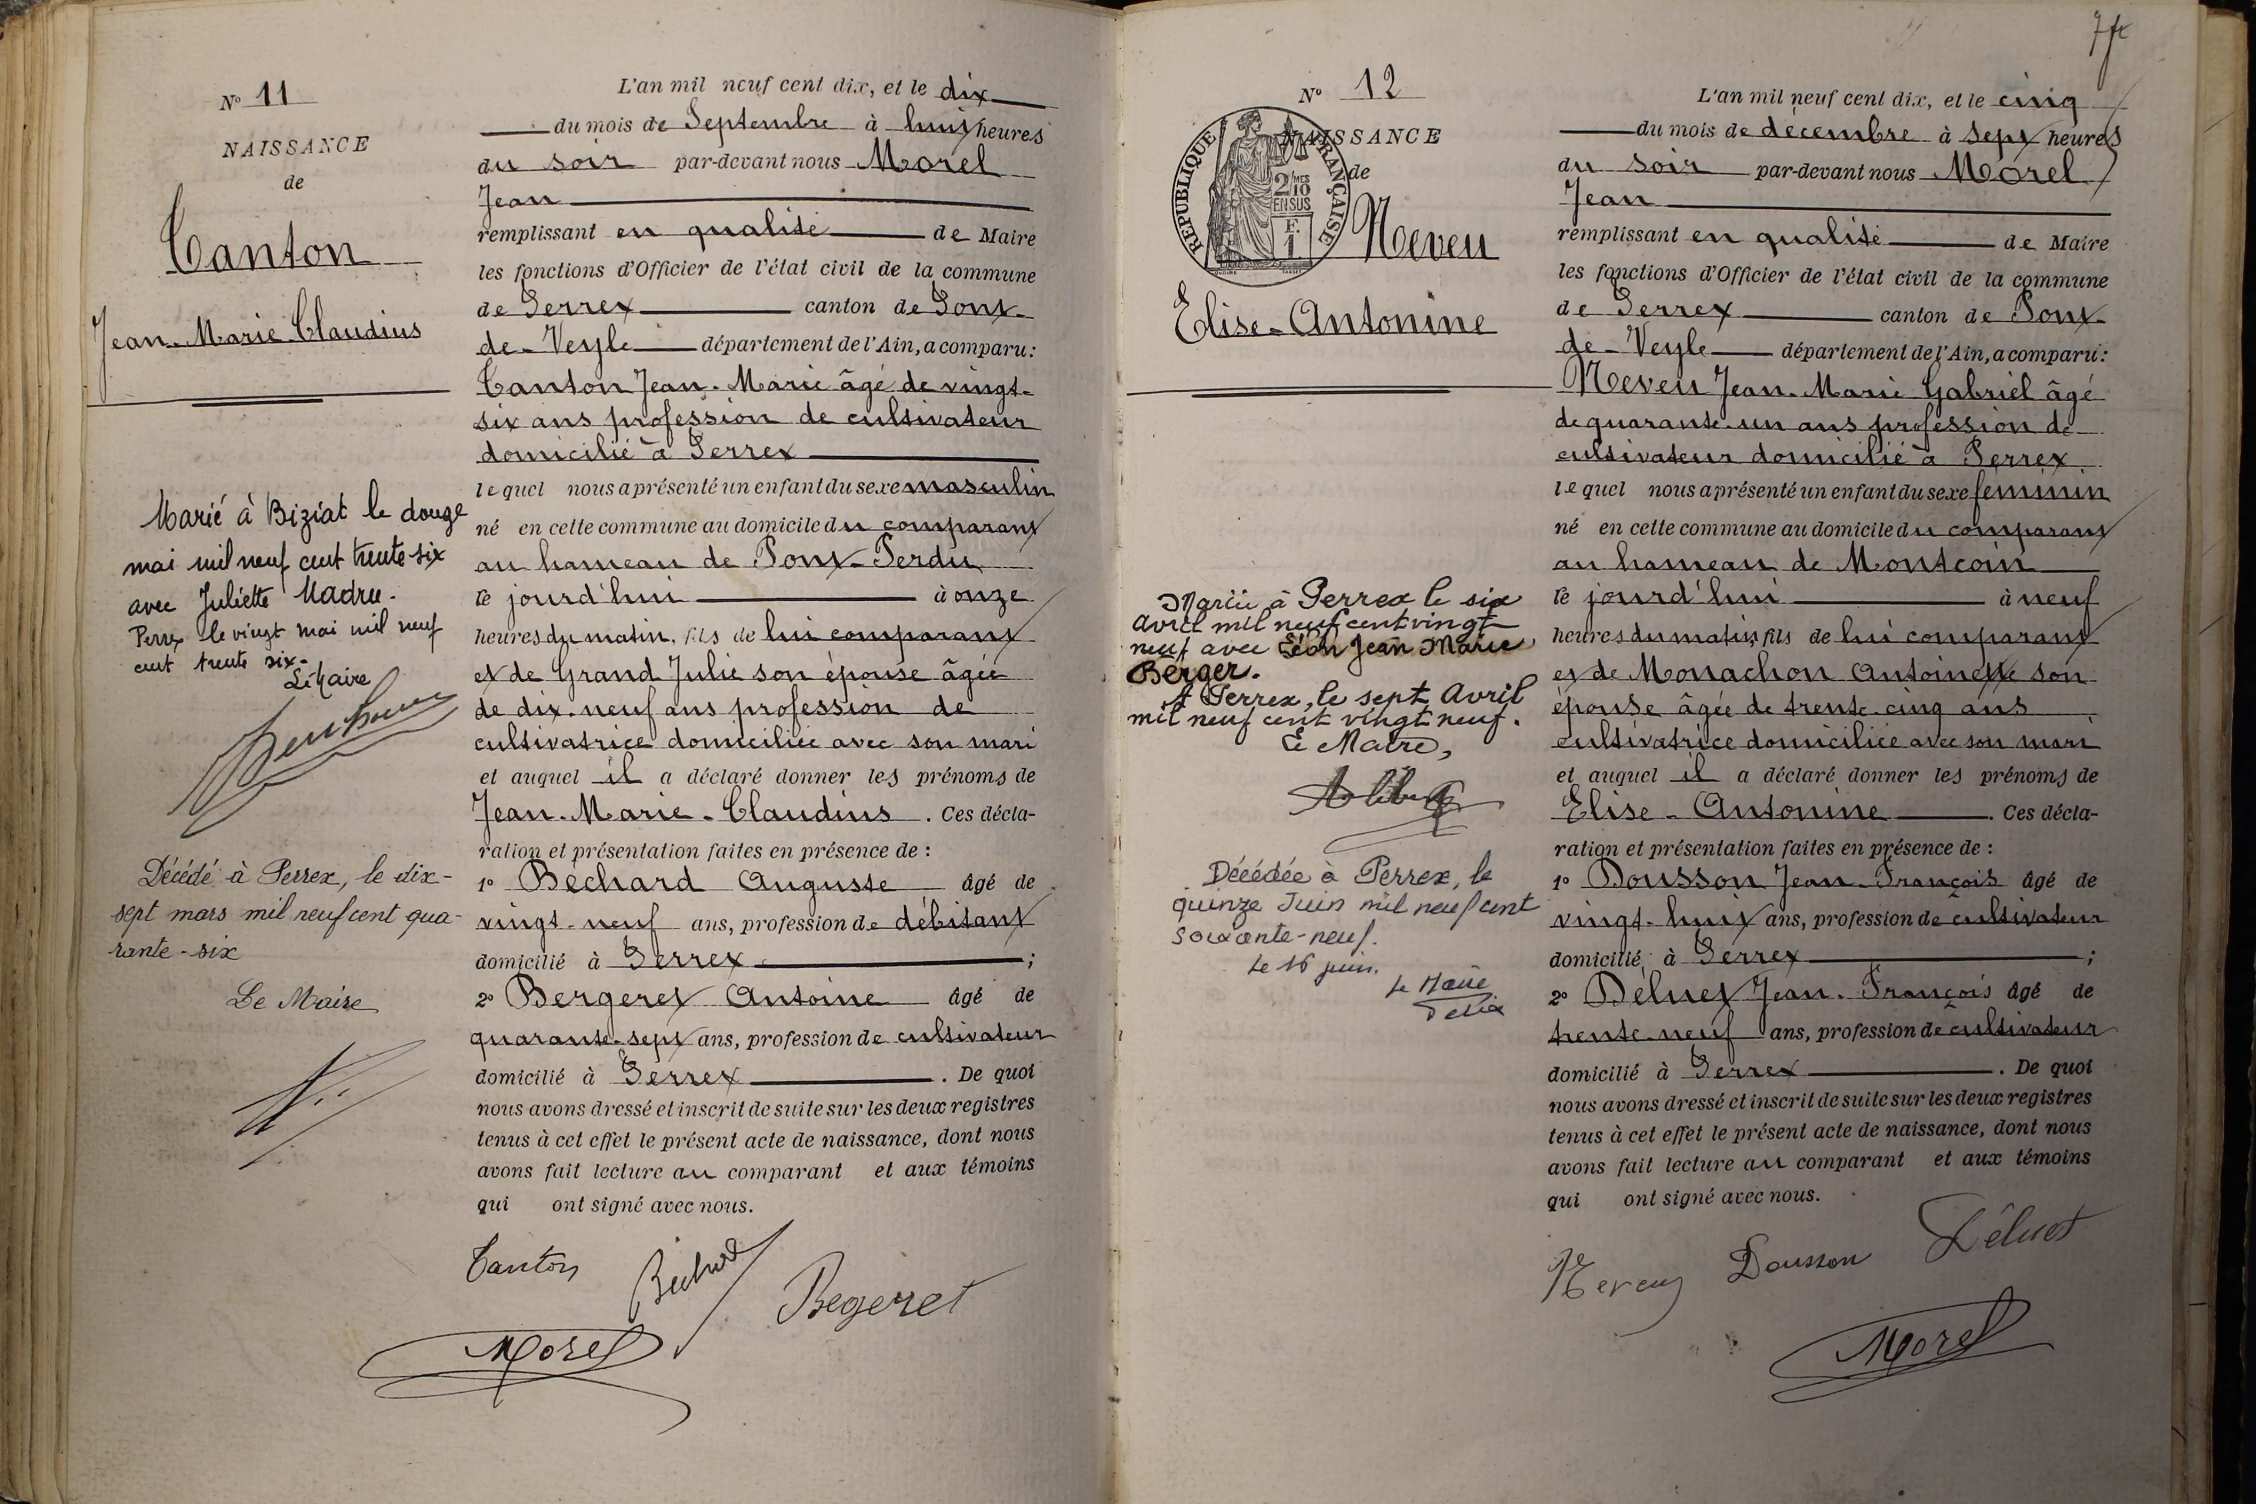 N° 11
NAISSANCE
de
Canton
Jean-Marie Claudius
Marié à Biziat le douze
mai mil neuf cent trente six
avec Juliette Nadru.
Perrex le vingt mai mil neuf
cent trente six.
Le Maire
Décédé à Perrex, le dix-
sept mars mil neuf cent qua-
rante-six
Le Maire
L'an mil neuf cent dix, et le dix
du mois de Septembre à huit heures
du soir par-devant nous Morel
Jean
remplissant en qualité de Maire
les fonctions d'Officier de l'état civil de la commune
de Perrex canton de Pont-
de-Veyle département de l'Ain, a comparu:
Canton Jean-Marie âgé de vingt-
six ans profession de cultivateur
domicilié à Perrex
lequel nous a présenté un enfant du sexe masculin
né en cette commune au domicile du comparant
au hameau de Pont-Perdu
le jourd'hui à onze
heures du matin, fils de lui comparant
et de Grand Julie son épouse âgée
de dix-neuf ans profession de
cultivatrice domiciliée avec son mari
et auquel il a déclaré donner les prénoms de
Jean-Marie-Claudius. Ces décla-
ration et présentation faites en présence de :
1° Bechard Auguste âgé de
vingt-neuf ans, profession de débitant
domicilié à Perrex ;
2° Bergeret Antoine âgé de
quarante-sept ans, profession de cultivateur
domicilié à Perrex . De quoi
nous avons dressé et inscrit de suite sur les deux registres
tenus à cet effet le présent acte de naissance, dont nous
avons fait lecture au comparant et aux témoins
qui ont signé avec nous.
Canton Bechard Begeret
Morel
7
N° 12
NAISSANCE
de
REPUBLIQUE FRANÇAISE
2/10 MES
EN SUS
F.
1
Neveu
Elise-Antonine
Mariée à Perrex le six
Avril mil neuf cent vingt
neuf avec Léon Jean Marie
Berger.
A Perrex, le sept Avril
mil neuf cent vingt neuf.
Le Maire,
Décédée à Perrex, le
quinze Juin mil neuf cent
soixante-neuf.
Le 16 juin.
Le Maire
L'an mil neuf cent dix, et le cinq
du mois de décembre à sept heures
du soir par-devant nous Morel
Jean
remplissant en qualité de Maire
les fonctions d'Officier de l'état civil de la commune
de Perrex canton de Pont-
de-Veyle département de l'Ain, a comparu:
Neveu Jean-Marie Gabriel âgé
de quarante-un ans profession de
cultivateur domicilié à Perrex
lequel nous a présenté un enfant du sexe féminin
né en cette commune au domicile du comparant
au hameau de Montcoin
le jourd'hui à neuf
heures du matin, fils de lui comparant
et de Monachon Antoinette son
épouse âgée de trente-cinq ans
cultivatrice domiciliée avec son mari
et auquel il a déclaré donner les prénoms de
Elise-Antonine . Ces décla-
ration et présentation faites en présence de :
1° Dousson Jean-François âgé de
vingt-huit ans, profession de cultivateur
domicilié à Perrex ;
2° Déluet Jean-François âgé de
trente-neuf ans, profession de cultivateur
domicilié à Perrex . De quoi
nous avons dressé et inscrit de suite sur les deux registres
tenus à cet effet le présent acte de naissance, dont nous
avons fait lecture au comparant et aux témoins
qui ont signé avec nous.
Neveu Dousson Déluet
Morel